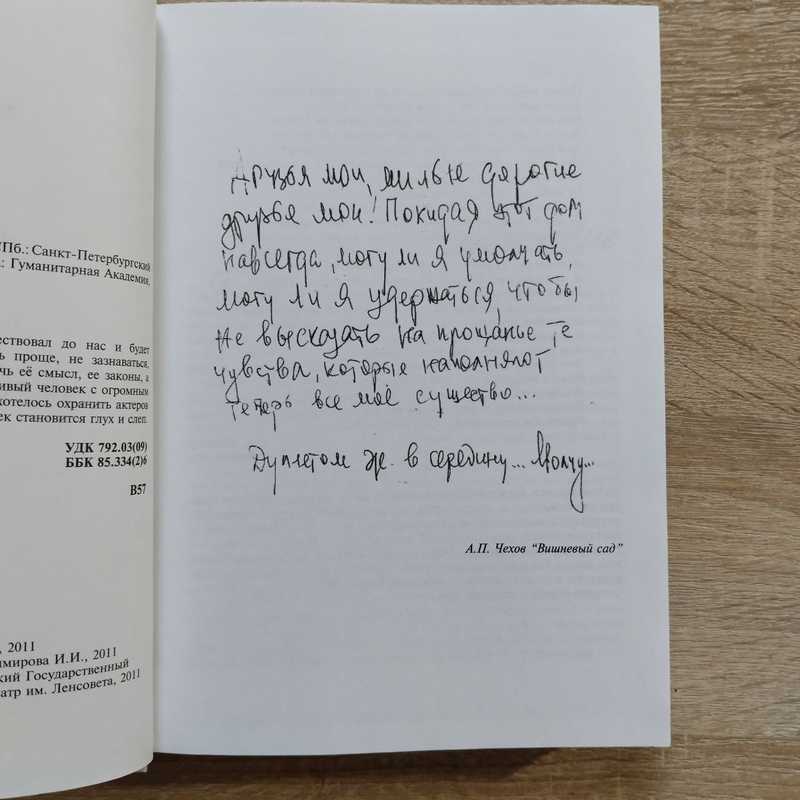 Пб.: Санкт-Петербургский
: Гуманитарная Академия,
ествовал до нас и будет
ь проще, не зазнаваться,
чь её смысл, ее законы, а
ивый человек с огромным
хотелось охранить актеров
ек становится глух и слеп.
УДК 792.03(09)
ББК 85.334(2)6
В57
, 2011
имирова И.И., 2011
кий Государственный
атр им. Ленсовета, 2011
Друзья мои, милые дорогие
друзья мои! Покидая этот дом
навсегда, могу ли я умолчать,
могу ли я удержаться, чтобы
не высказать на прощанье те
чувства, которые наполняют
теперь все моё существо...
Дуплетом ж. в середину... Молчу...
А.П. Чехов “Вишневый сад”